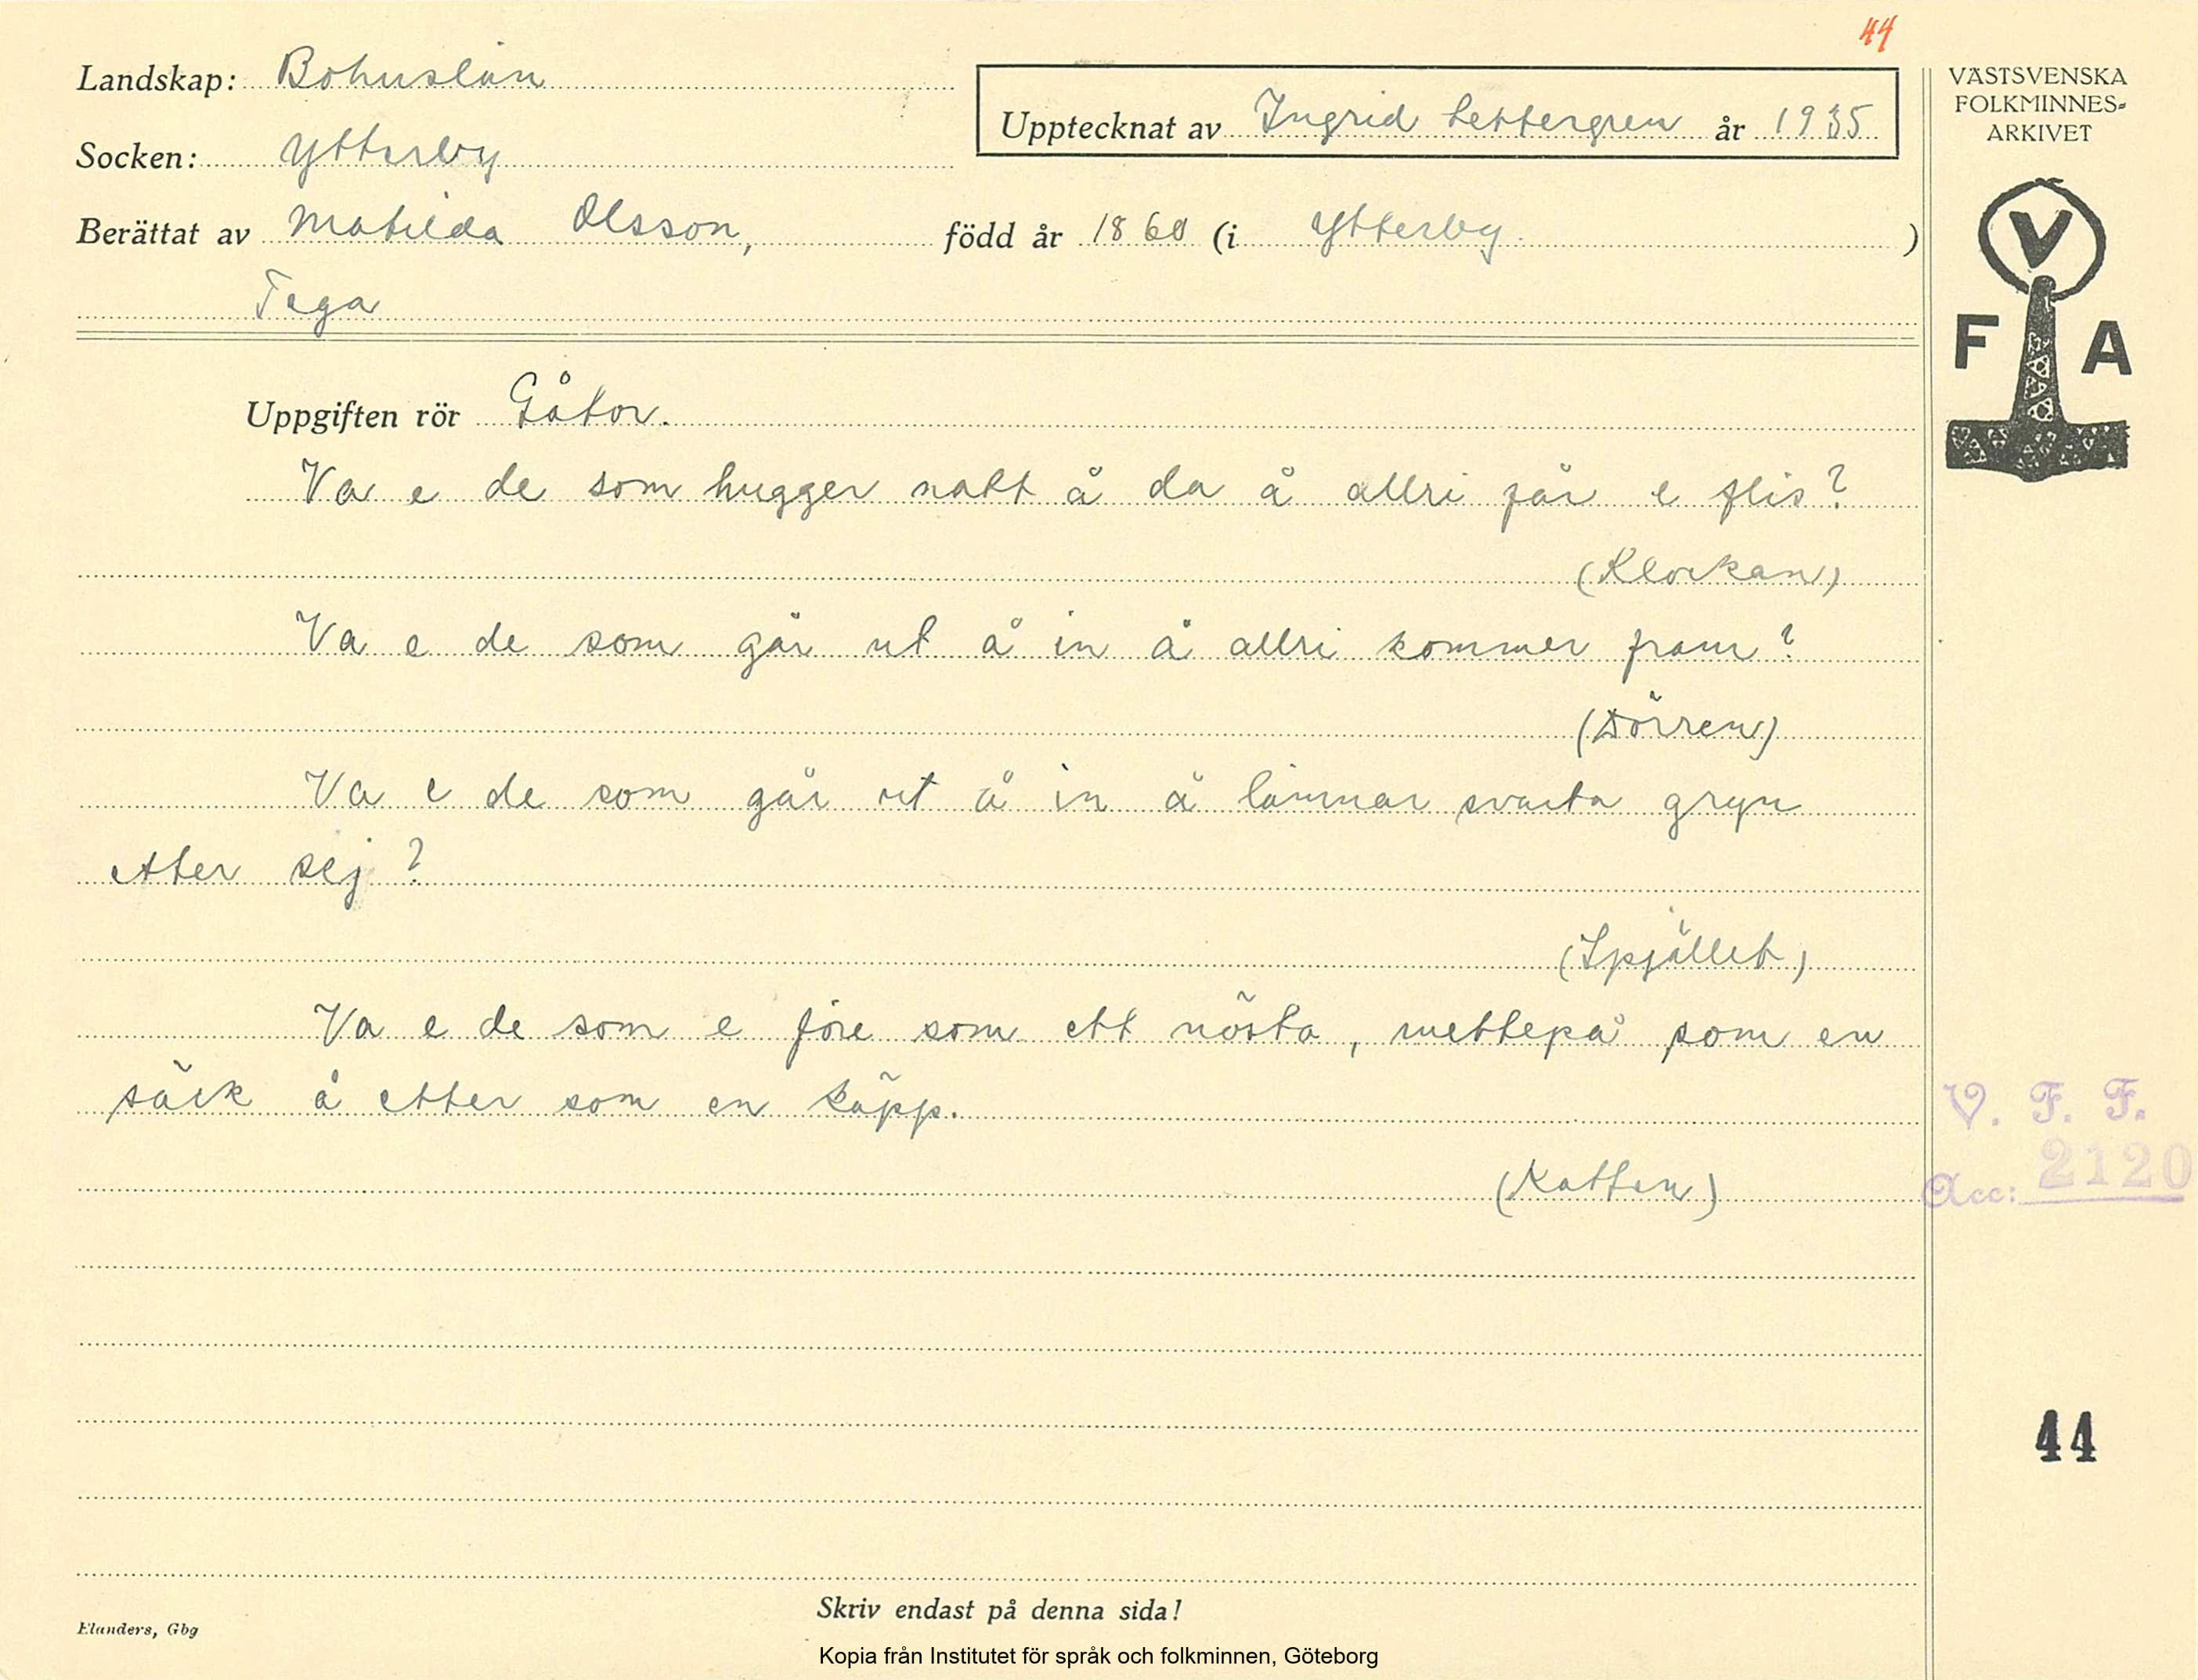 44
Landskap: Bohuslän
Upptecknat av Ingrid Settergren år 1935
VÄSTSVENSKA
FOLKMINNES-
ARKIVET
Socken: Ytterby
Berättat av Matilda Olsson, född år 1860 (i Ytterby )
Tega
V
F A
Uppgiften rör Gåtor.
Va e de som hugger natt å da å allri får e flis?
(Klockan)
Va e de som går ut å in å allri kommer fram?
(Dörren)
Va e de som går ut å in å lämnar svarta gryn
etter sej?
(Spjället)
Va e de som e före som ett nõsta, mettepå som en
säck å etter som en käpp.
(Katten)
V. F. F.
Acc: 2120
44
Skriv endast på denna sida!
Elanders, Gbg
Kopia från Institutet för språk och folkminnen, Göteborg